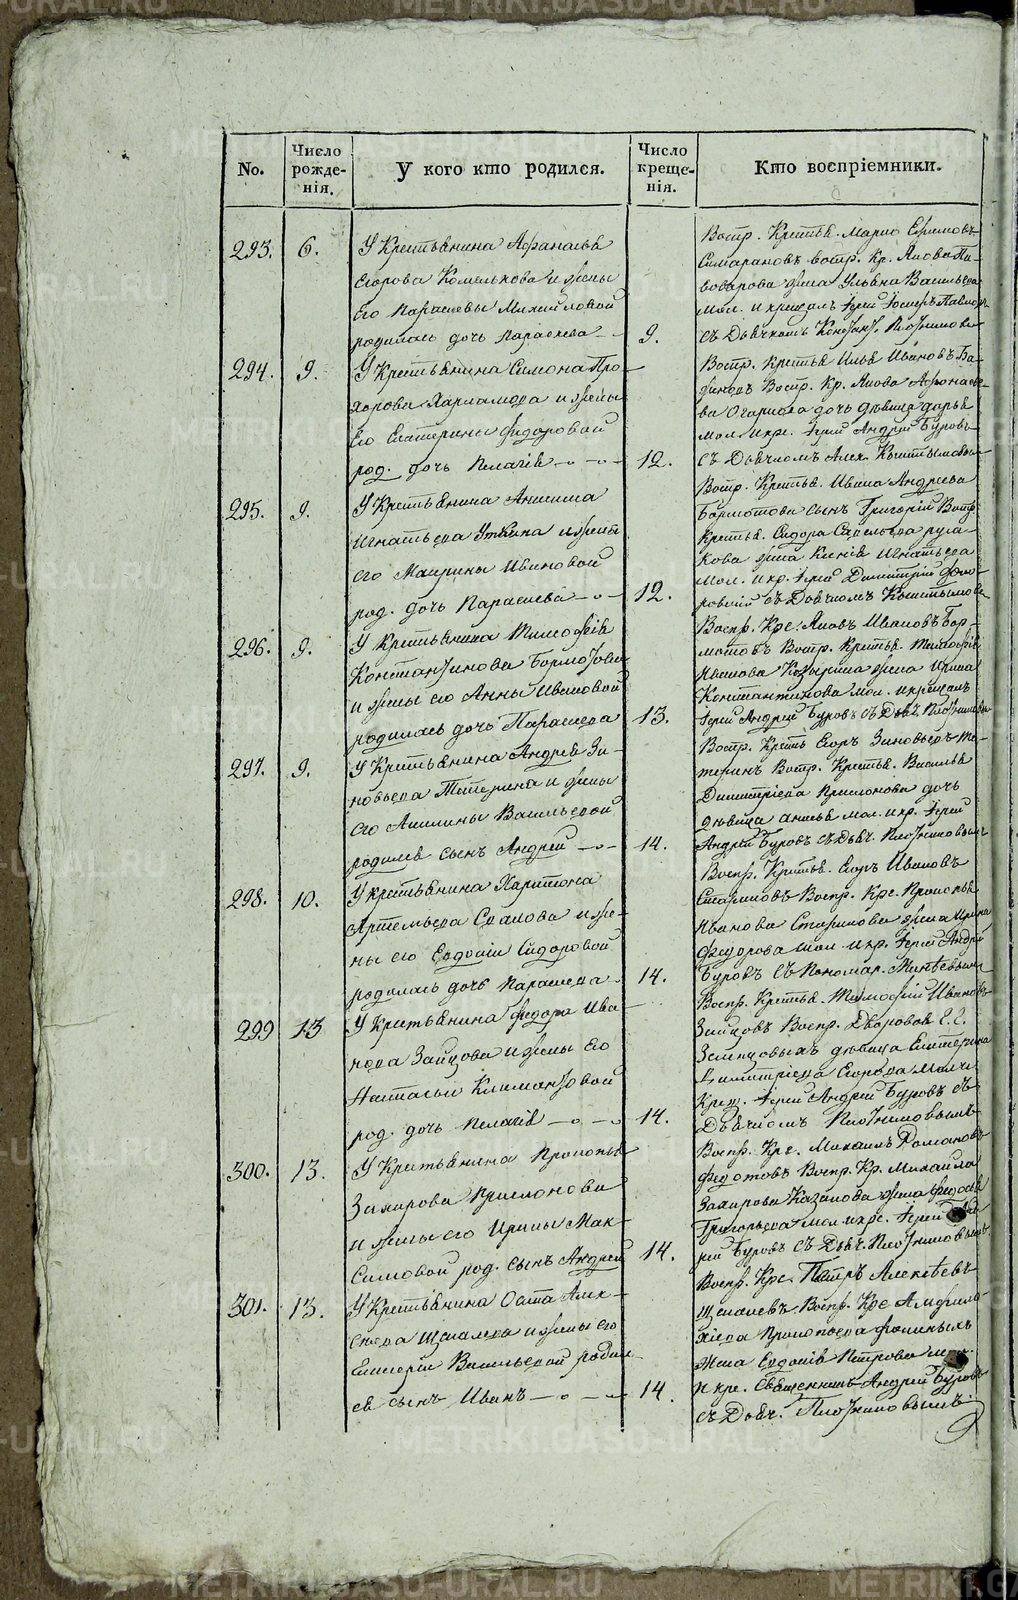 No.
Число рожде-нія.
У кого кто родился.
Число креще-нія.
Кто воспріемники.
293. 6.
У Крестьянина Афанасья
Егорова Комелькова и жены
его Парасковьи Михайловой
родилась дочь Параскева
9.
Воспр. Крестья. Марко Ефимовъ
воспр. Кр. Якова Пи-
воварова жена Ульяна Васильева
мол. и крещалъ Іерей Іосифъ Павловъ
съ Дьячкомъ Констан. Плотников
294. 9.
У Крестьянина Симона Про-
хорова Харламова и жены
Его Екатерины Федоровой
род. дочь Пелагія
12.
Воспр. Крестья Илья Ивановъ Ба-
Воспр. Кр. Якова Афонасье-
ва дочь дѣвица Дарья
мол. и кре. Іерей Андрей Буровъ
съ Дьячкомъ Алек.
295. 9.
У Крестьянина Анисима
Игнатьева Уткина и жены
его Маврины Ивановой
род. дочь Параскева
12.
Воспр. Крестья. Ивана Андреева
Бармотова сынъ Григорій Воспр
Крестья. Сидора Савельева руса-
кова жена Ксенія Игнатьева
мол. и кр. Іерей Димитрій Фло-
ровскій съ Дьячкомъ
296. 9.
У Крестьянина Тимофѣя
Константинова Бармотова
и жены его Анны Ивановой
родилась дочь Параскева
13.
Воспр. Кре. Яковъ Ивановъ Бор-
мотовъ Воспр. Крестья. Тимофѣя
Иванова Козырина жена Ирина
Константинова мол. и крещалъ
Іерей Андрей Буровъ съ Дьяч. Плотниковы
297. 9.
У Крестьянина Андрея Зи-
новьева Тетерина и жены
его Акилины Васильевой
родился сынъ Андрей
14.
Воспр. Кресть Егоръ Зиновьевъ Те-
теринъ Воспр. Крестья. Василья
Димитріева Прислонова дочь
дѣвица Анисья мол. и кр. Іерей
Андрей Буровъ съ Дьяч. Плотниковымъ
298. 10.
У крестьянина Харитона
Артемьева и же-
ны его Евдокіи Сидоровой
родилась дочь Параскева
14.
Воспр. Крестья. Егоръ Ивановъ
Стариковъ Воспр. Кре. Прокопья
Иванова Старикова жена Ирина
Федорова мол. и кр. Іерей Андрей
Буровъ съ Пономар. Минѣевымъ
299 13
У Крестьянина Федора Ива-
нова Зайцова и жены Его
Настасьи Климантовой
род. дочь Пелагія
14.
Воспр. Крестья. Тимофей Ивановъ
Зайцовъ Воспр. Дворовая Г. Г.
дѣвица Екатерина
Димитріева Егорова мол. и
Крещ. Іерей Андрей Буровъ съ
Дьячкомъ Плотниковымъ
300. 13.
У Крестьянина Прокопья
Захарова Прислонова
и жены его Ирины Мак-
симовой род. сынъ Андрей
14.
Воспр. Кре. Михаилъ Романовъ
Федотовъ Воспр. Кр. Михаила
Захарова Казакова жена Федосья
Григорьева мол. и кре. Іерей Анд-
рей Буровъ съ Дьяч. Плотниковымъ
301. 13.
У Крестьянина Осипа Алек-
сѣева Щекалева и жены его
Гликеріи Васильевой родил-
ся сынъ Иванъ
14.
Воспр. Кре. Петръ Алексѣевъ
Щекалевъ Воспр. Кре Амфило-
хіева Прокопьева
жена Евдокія Петрова мол.
и кре. Священникъ Андрей Буровъ
съ Дьяч. Плотниковымъ.
METRIKI.GASO-URAL.RU